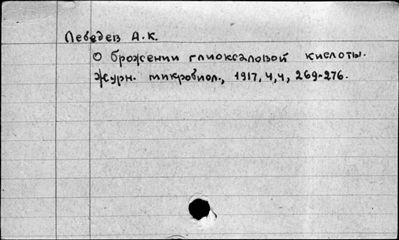 Лебедев А.К.
О брожении глиоксаловой кислоты.
Журн. микробиол., 1917, 4, 4, 269-276.